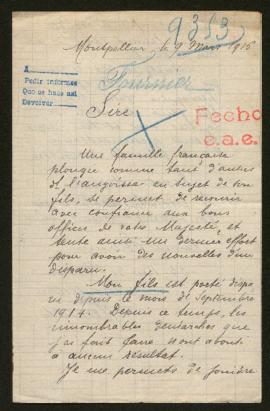 9353
Montpellier le 9 Mars 1916
A
Pedir informes
Que se hace así
Devolver
Fournier
Sire
Fecho
e.a.e.
Une famille française
plongée comme tant d'autres
de l'angoisse au sujet de son
fils, se permet de recourir
avec confiance aux bons
offices de votre Majesté, et
tente ainsi un dernier effort
pour avoir des nouvelles d'un
disparu.
Mon fils est porté dispa
ru depuis le mois de Septembre
1914. Depuis ce temps, les
innombrables démarches que
j'ai fait faire n'ont abouti
à aucun résultat.
Je me permets de joindre